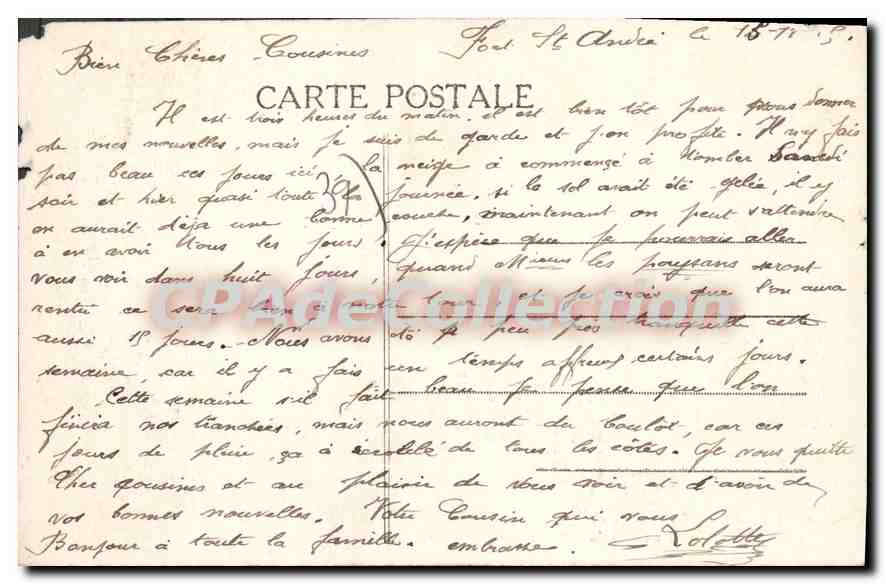 Bien Chères Cousines Fort St André le 15-11-15.
CARTE POSTALE
Il est trois heures du matin, il est bien tôt pour vous donner
de mes nouvelles, mais je suis de garde et j'en profite. Il ny fais
pas beau ces jours ici, la neige à commençé à tomber Samedi
soir et hier quasi toute la journée, si le sol avait été gelée, il y
en aurait déja une bonne couche, maintenant on peut s'attendre
à en avoir tous les jours. J'espère que je pourrais aller
vous voir dans huit jours, quand Mieurs les paysans seront
rentré ce sera bien à notre tour, et je crois que l'on aura
aussi 15 jours. - Nous avons été à peu près tranquille cette
semaine, car il y a fais un temps affreux certains jours.
Cette semaine s'il fait beau je pense que l'on
finira nos tranchées, mais nous auront du boulot, car ces
jours de pluie, ça à de tous les côtés. Je vous quitte
Cher Cousines et au plaisir de vous voir et d'avoir de
vos bonnes nouvelles. Votre Cousin qui vous
Bonjour à toute la famille. embrasse. Lolotte
CPAdeCollection.com